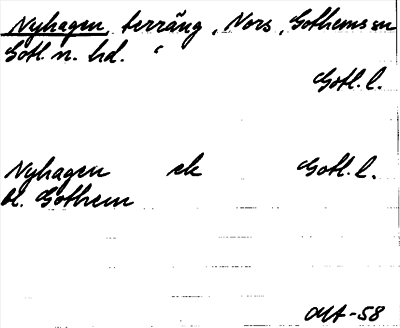 Nyhagen, terräng, Nors, Gothems sn
Gotl. n. hd.
Gotl. l.
Nyhagen ek Gotl. l.
bl. Gothem
-58